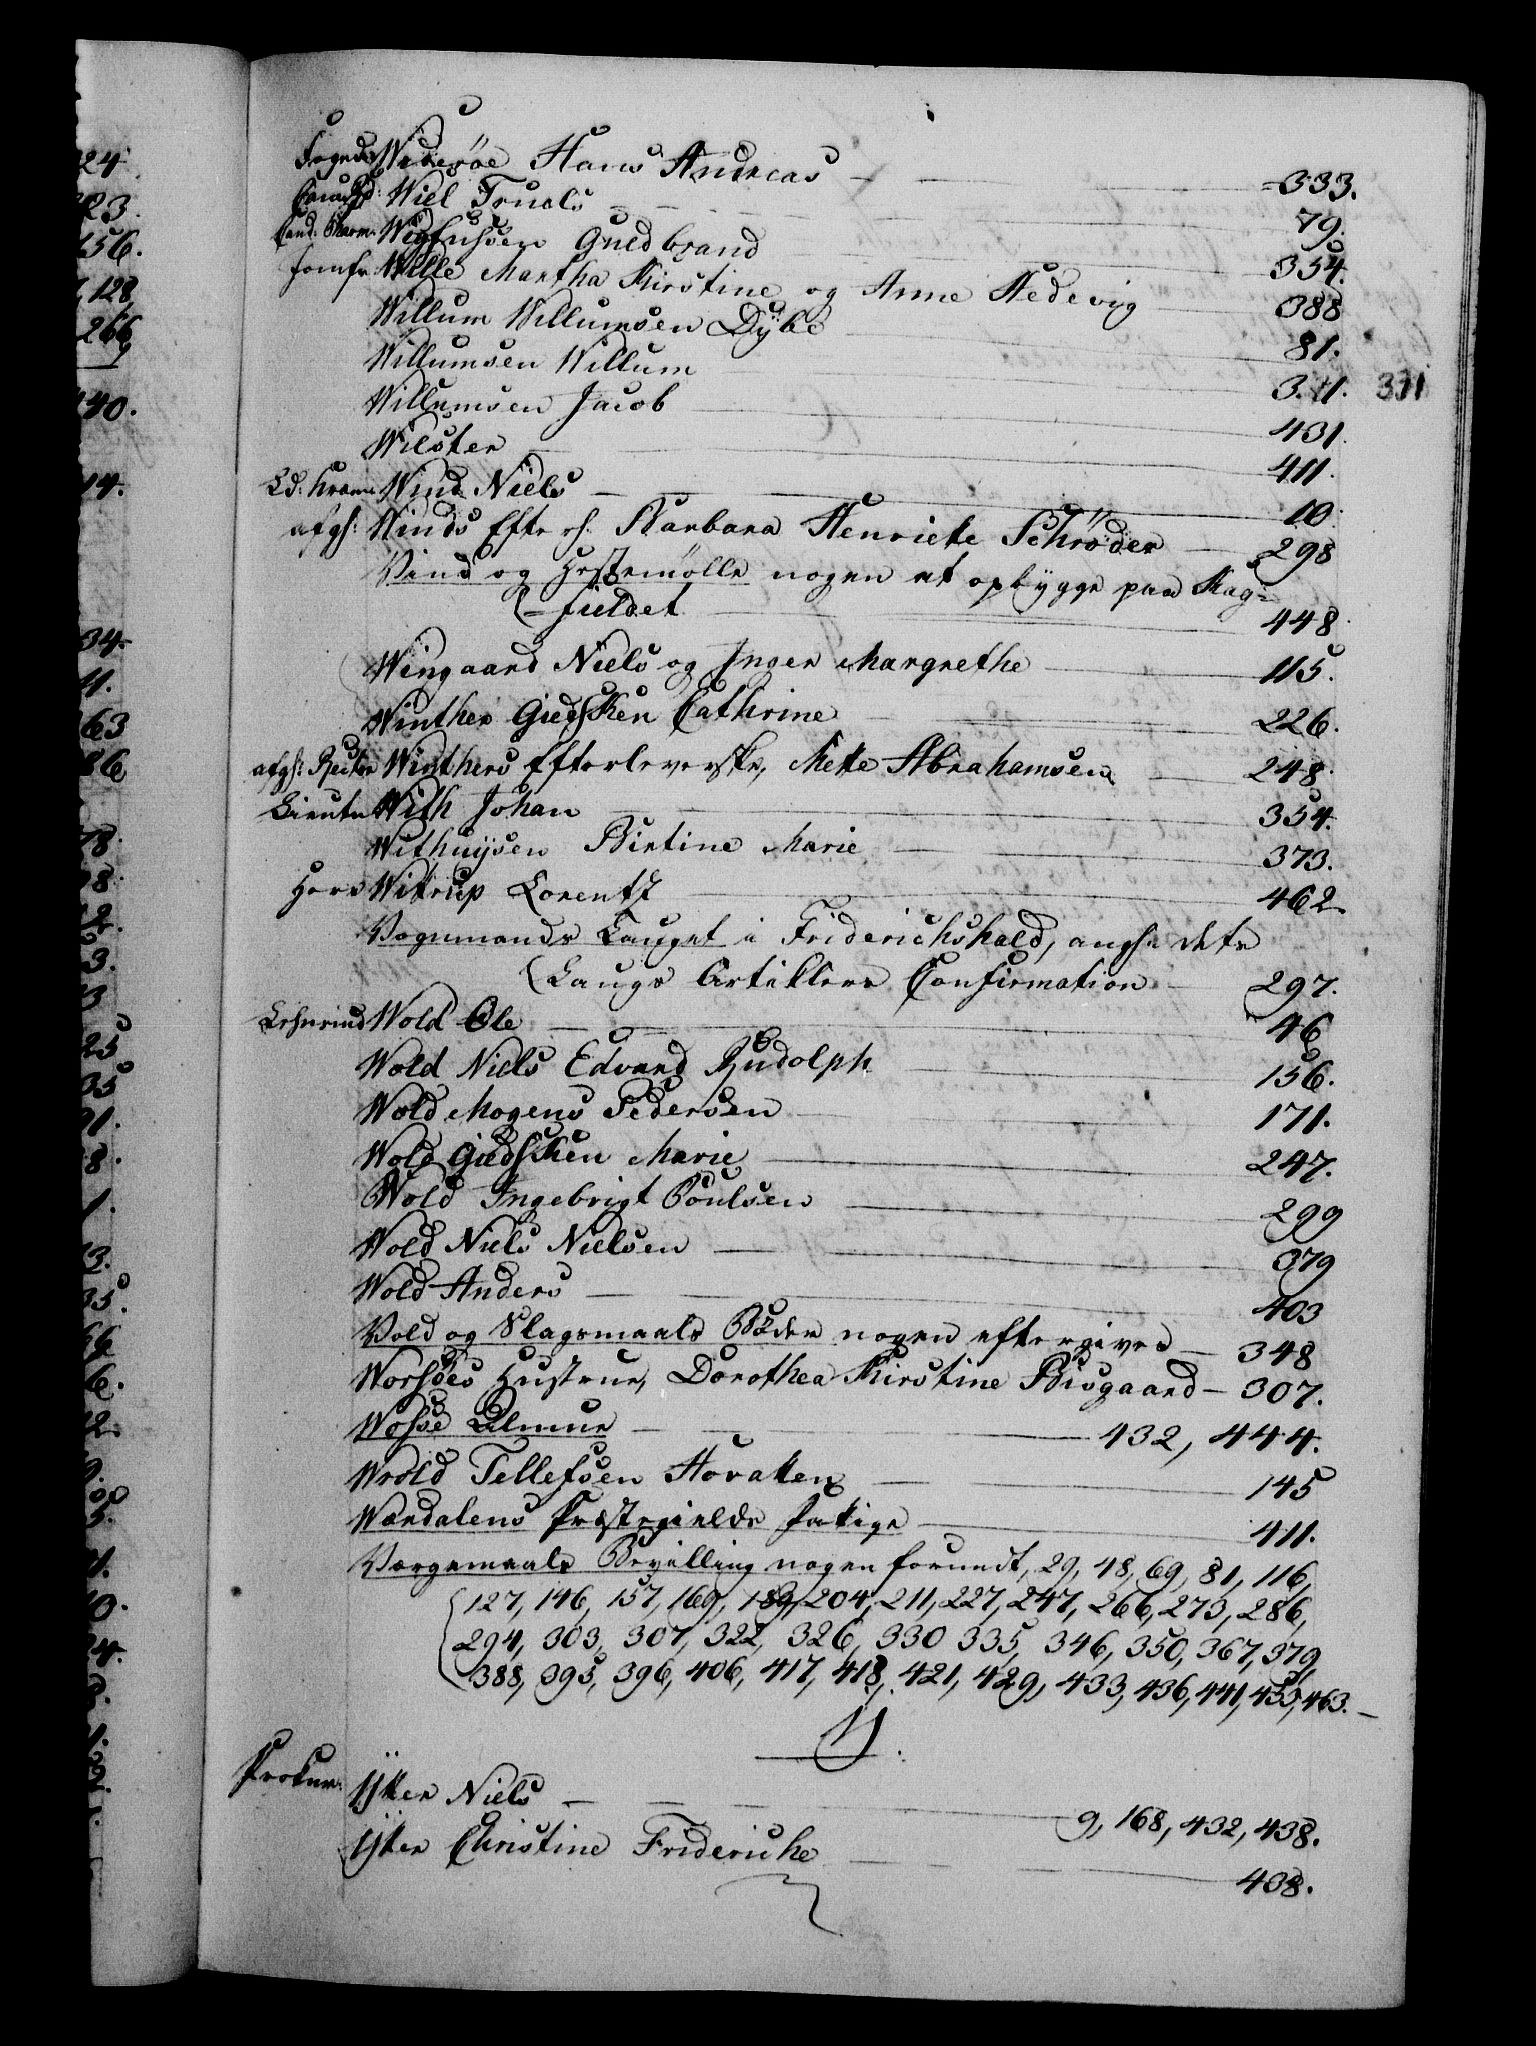 Fogeden Widerøe Hans Andreas — 333.
Cancelld: Wiel Truels — 79.
Cand: Pharm: Wigfussen Guldbrand — 354.
Jomfr: Wille Martha Kirstine og Anne Hedevig — 388
Willum Willumsen Dybe — 81.
Willumsen Willum — 371. 371
Willumsen Jacob — 431.
Wilster — 411.
Wind Niels — 10.
afgs: Winds Efterls: Barbara Henriette Schrøder — 298
Vind og Hestemølle nogen at opbygge paa Kag=
=fieldet — 448.
Wingaard Niels og Inger Margrethe — 115.
Winther Giedsken Cathrine — 226.
afgs: Rector Winthers Efterleverske, Mette Abrahamsen — 248.
Lieutn: With Johan — 354.
Withuysen Birtine Marie — 373.
Herr Witrup Lorentz — 462.
Vognmands Lauget i Friderichshald, angs: dets
Laugs Artiklers Confirmation — 297.
Wold Ole — 46
Wold Niels Edvard Rudolph — 156.
Wold Mogens Pedersen — 171.
Wold Giedsken Marie — 247.
Wold Ingebrigt Poulsen — 299
Wold Niels Nielsen — 379
Wold Anders — 403
Vold og Slagsmaals Bøder nogen eftergived — 348
Worsøes Hustrue, Dorothea Kirstine Bisgaard — 307.
Wosse Almue — 432, 444.
Wrold Tellefsen Hovaken — 145
Wærdalens Præstegields Fattige — 411.
Værgemaals Bevilling nogen forundt, 29, 48, 69, 81, 116,
127, 146, 157, 169, 189, 204, 211, 227, 247, 266, 273, 286,
294, 303, 307, 322, 326, 330 335, 346, 350, 367, 379,
388, 395, 396, 406, 417, 418, 421, 429, 433, 436, 441, 453, 463. —
Y.
Prokur: Yter Niels — 9, 168, 432, 438.
Yter Christine Frideriche — 438.